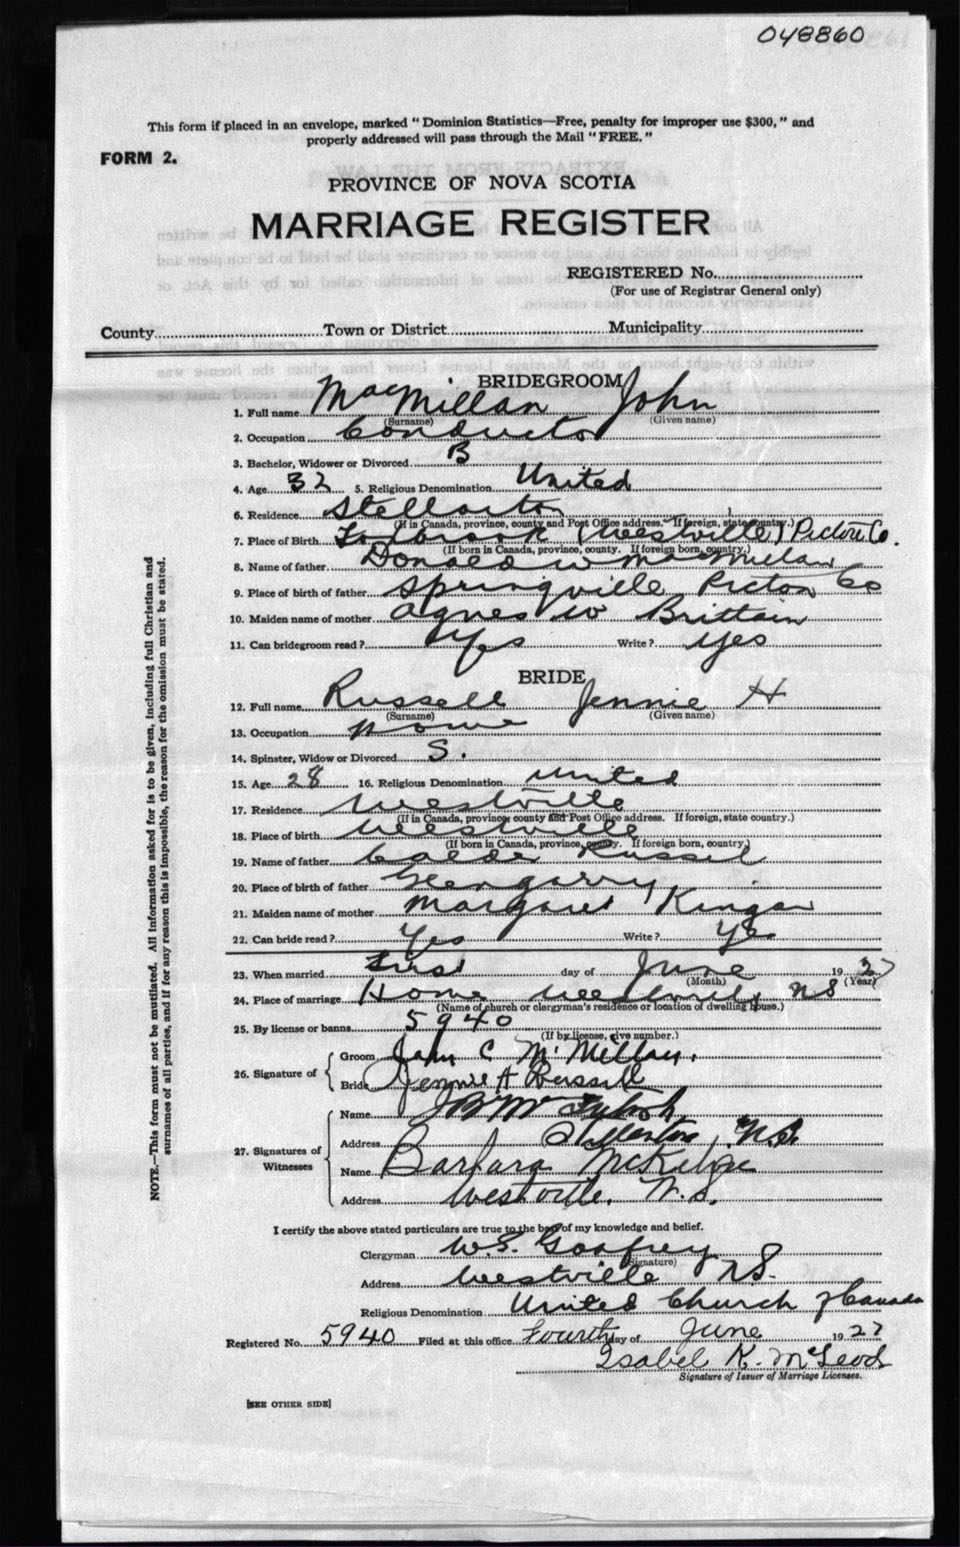 048860
This form if placed in an envelope, marked "Dominion Statistics—Free, penalty for improper use $300," and
properly addressed will pass through the Mail "FREE."
FORM 2.
PROVINCE OF NOVA SCOTIA
MARRIAGE REGISTER
REGISTERED No.
(For use of Registrar General only)
County Town or District Municipality
BRIDEGROOM
1. Full name MacMillan John
(Surname) (Given name)
2. Occupation Conductor
3. Bachelor, Widower or Divorced B
4. Age 32 5. Religious Denomination United
6. Residence Stellarton
(If in Canada, province, county and Post Office address. If foreign, state country.)
7. Place of Birth (Westville) Pictou Co.
(If born in Canada, province, county. If foreign born, country.)
8. Name of father Donald W MacMillan
9. Place of birth of father Springville Pictou Co
10. Maiden name of mother Agnes W Brittain
11. Can bridegroom read? Yes Write? Yes
BRIDE
12. Full name Russell Jennie H
(Surname) (Given name)
13. Occupation None
14. Spinster, Widow or Divorced S.
15. Age 28 16. Religious Denomination United
17. Residence Westville
(If in Canada, province, county and Post Office address. If foreign, state country.)
18. Place of birth Westville
(If born in Canada, province, county. If foreign born, country.)
19. Name of father Russel
20. Place of birth of father Glengarry
21. Maiden name of mother Margaret
22. Can bride read? Yes Write? Yes
23. When married First day of June 1927
(Month) (Year)
24. Place of marriage Home Westville NS
(Name of church or clergyman's residence or location of dwelling house.)
25. By license or banns 5940
(If by license, give number.)
26. Signature of Groom John C McMillan.
Bride Jennie H Russell
27. Signatures of Witnesses
Name
Address Stellarton, N.S.
Name Barbara
Address Westville, N.S.
I certify the above stated particulars are true to the best of my knowledge and belief.
Clergyman W.S. Godfrey
(Signature)
Address Westville N.S.
Religious Denomination United Church of Canada
Registered No. 5940 Filed at this office Fourth day of June 1927
Isabel K. McLeod
Signature of Issuer of Marriage Licenses.
[SEE OTHER SIDE]
NOTE.—This form must not be mutilated. All information asked for is to be given, including full Christian and
surnames of all parties, and if for any reason this is impossible, the reason for the omission must be stated.